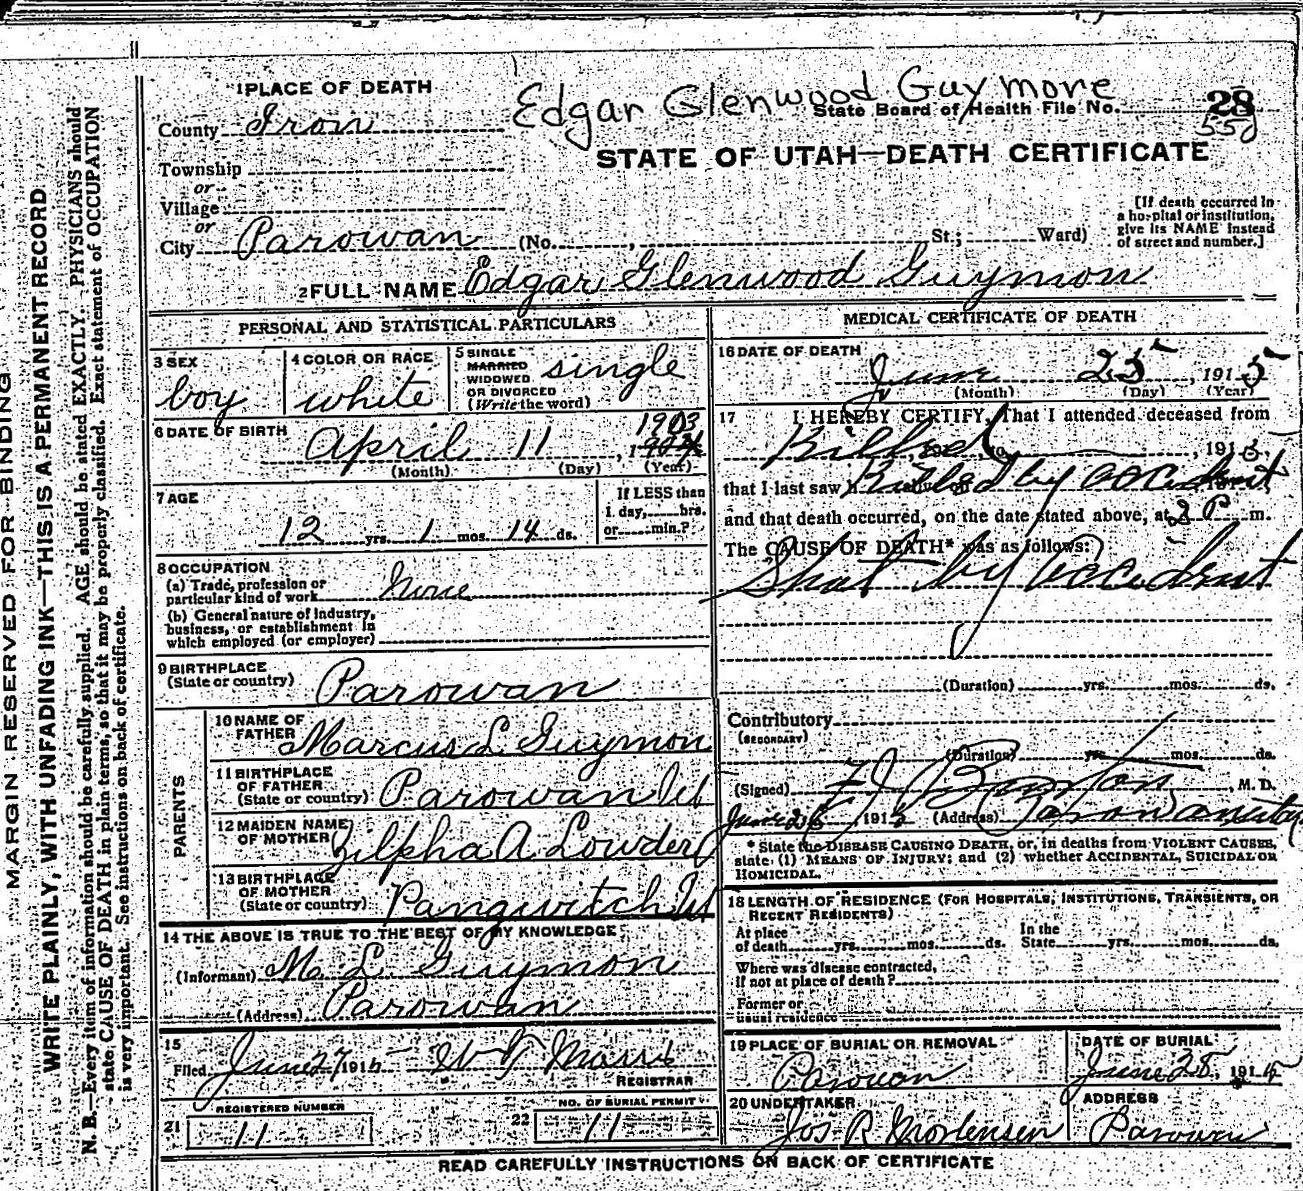 1 PLACE OF DEATH
Edgar Glenwood Guymore
County Iron
State Board of Health File No. 28
558
STATE OF UTAH—DEATH CERTIFICATE
Township
or
Village
or
City Parowan (No. , St.; Ward)
[If death occurred in
a hospital or institution,
give its NAME instead
of street and number.]
2 FULL NAME Edgar Glenwood Guymon
PERSONAL AND STATISTICAL PARTICULARS
3 SEX
boy
4 COLOR OR RACE
white
5 SINGLE
MARRIED
WIDOWED
OR DIVORCED
(Write the word)
single
6 DATE OF BIRTH
1903
April 11 , 1
(Month) (Day) (Year)
7 AGE
12 yrs. 1 mos. 14 ds.
If LESS than
1 day, hrs.
or min.?
8 OCCUPATION
(a) Trade, profession or
particular kind of work None
(b) General nature of industry,
business, or establishment in
which employed (or employer)
9 BIRTHPLACE
(State or country) Parowan
PARENTS
10 NAME OF
FATHER Marcus L. Guymon
11 BIRTHPLACE
OF FATHER
(State or country) Parowan Ut
12 MAIDEN NAME
OF MOTHER Zilpha A Lowder
13 BIRTHPLACE
OF MOTHER
(State or country) Panguitch Ut
14 THE ABOVE IS TRUE TO THE BEST OF MY KNOWLEDGE
(Informant) M. L. Guymon
(Address) Parowan
15
Filed June 27 1915
REGISTRAR
REGISTERED NUMBER
21 11
NO. OF BURIAL PERMIT
22 11
MEDICAL CERTIFICATE OF DEATH
16 DATE OF DEATH
June 25 , 1915
(Month) (Day) (Year)
17 I HEREBY CERTIFY, That I attended deceased from
Killed , 1915
that I last saw h Killed by accident
and that death occurred, on the date stated above, at 2 P m.
The CAUSE OF DEATH* was as follows:
Shot by Accident
(Duration) yrs. mos. ds.
Contributory
(SECONDARY)
(Duration) yrs. mos. ds.
(Signed) , M. D.
June 26 , 1915 (Address) Parowan Utah
* State the DISEASE CAUSING DEATH, or, in deaths from VIOLENT CAUSES,
state (1) MEANS OF INJURY; and (2) whether ACCIDENTAL, SUICIDAL OR
HOMICIDAL.
18 LENGTH OF RESIDENCE (FOR HOSPITALS, INSTITUTIONS, TRANSIENTS, OR
RECENT RESIDENTS)
At place
of death yrs. mos. ds.
In the
State yrs. mos. ds.
Where was disease contracted,
If not at place of death?
Former or
usual residence
19 PLACE OF BURIAL OR REMOVAL
Parowan
DATE OF BURIAL
June 28, 1915
20 UNDERTAKER
Jos R. Mortensen
ADDRESS
Parowan
READ CAREFULLY INSTRUCTIONS ON BACK OF CERTIFICATE
MARGIN RESERVED FOR BINDING
WRITE PLAINLY, WITH UNFADING INK—THIS IS A PERMANENT RECORD
N. B.—Every item of information should be carefully supplied. AGE should be stated EXACTLY. PHYSICIANS should
state CAUSE OF DEATH in plain terms, so that it may be properly classified. Exact statement of OCCUPATION
is very important. See instructions on back of certificate.